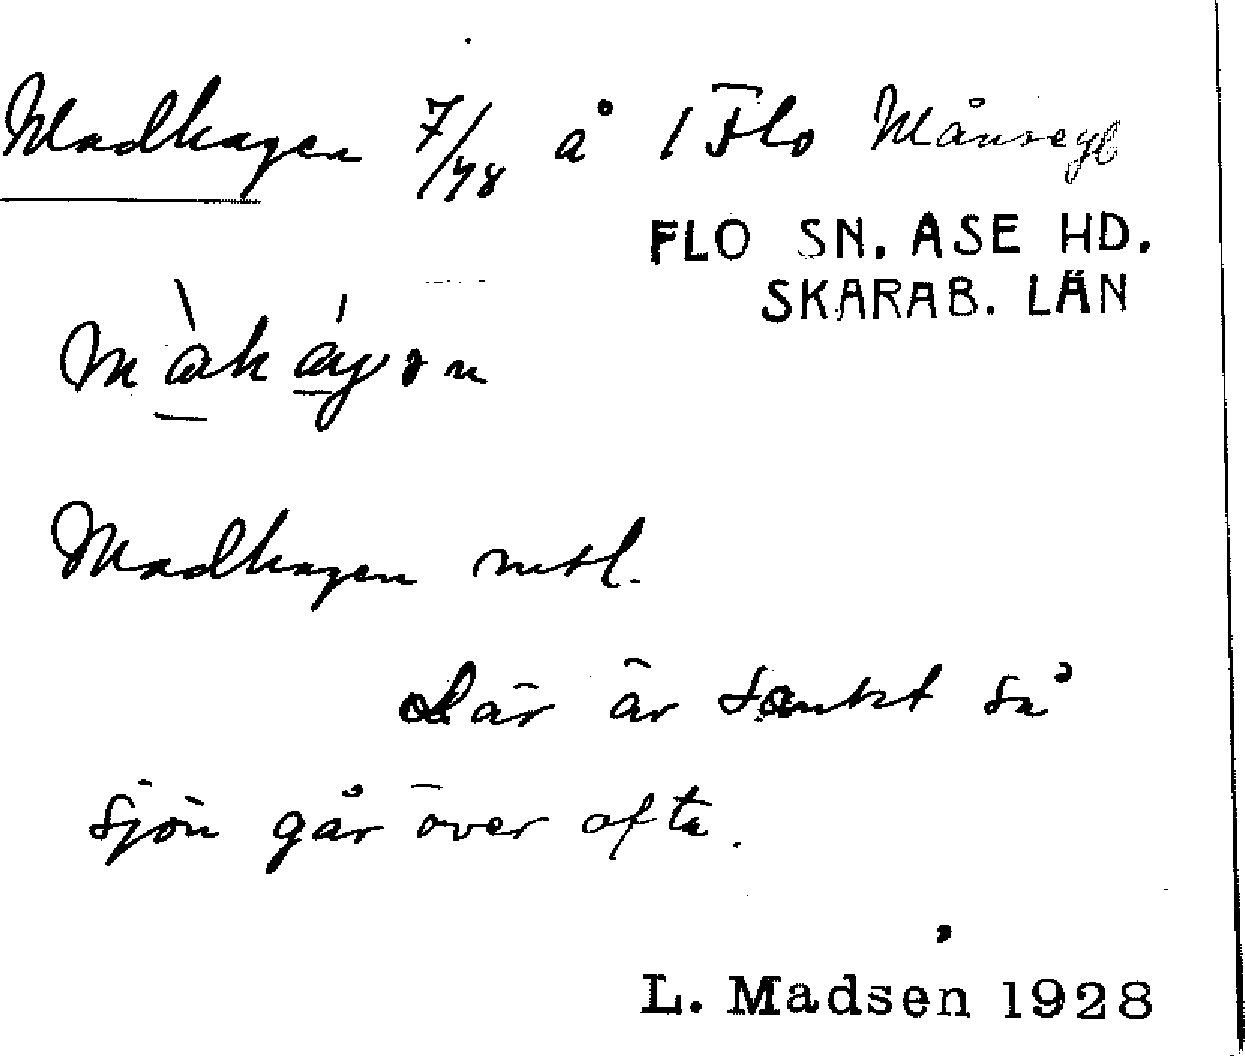 Madhagen 7/48 å 1 Flo Månsegb
FLO SN. ASE HD.
SKARAB. LÄN
Madhagen mtl.
där är sankt så
sjön går över ofta.
L. Madsen 1928